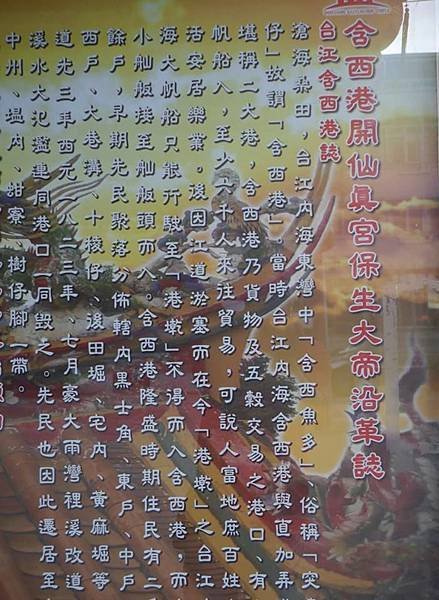 含西港開仙真宮保生大帝沿革誌
台江含西港誌
滄海桑田，台江內海東灣中「含西魚多」、俗稱「突
仔」故謂「含西港」。當時台江內海含西港與直加弄
壏稱二大港，含西港乃貨物及五穀交易之港口、有
帆船入，至少六十人來往貿易，可說人富地庶百姓
活安居樂業。後因江道淤塞而在今「港墩」之台江
海大帆船只能行駛至「港墩」不得而入含西港，而
小舢舨接至舢舨頭而入。含西港隆盛時期住民有二
餘戶，早期先民聚落分佈轄內黑士角、東戶、中戶
西戶、大巷溝、十棧仔、後田堀、宅內、黃麻堀等
道光三年西元一八二三年、七月豪大雨灣裡溪改道
溪水大氾濫連同港口一同毀之。先民也因此遷居至
中州、塭內、蚶寮、樹仔腳一帶。